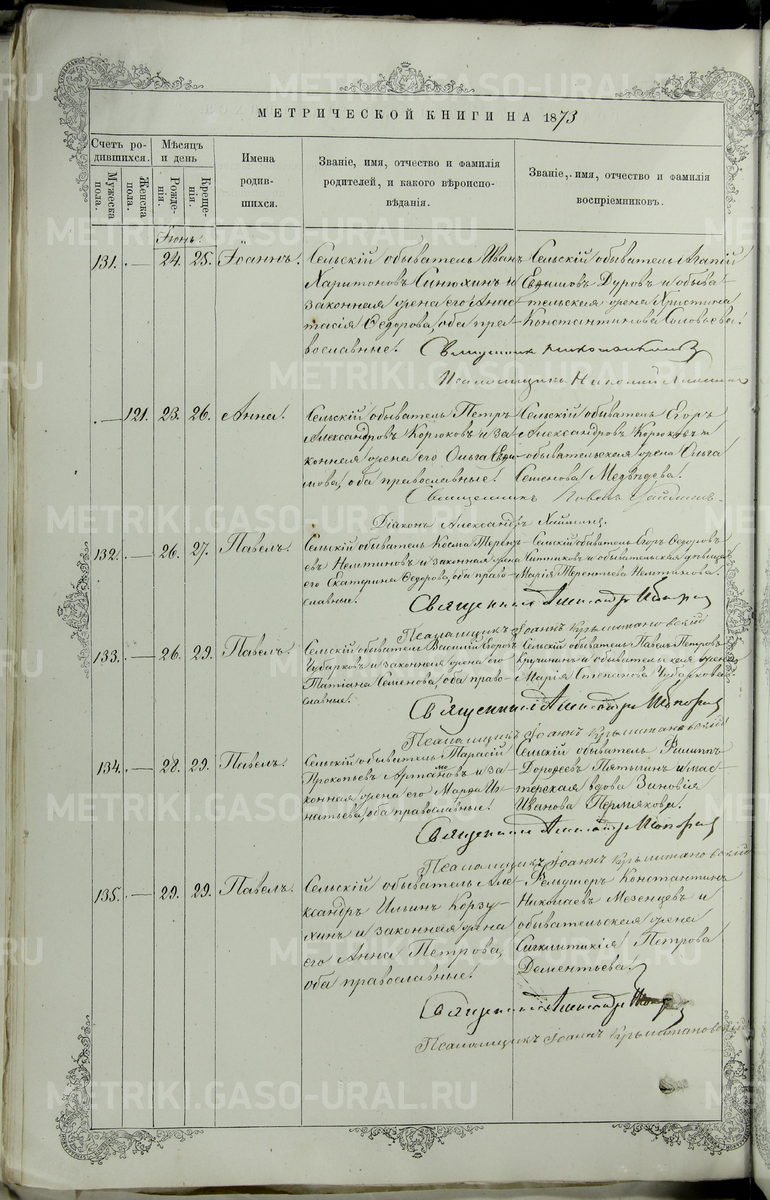 МЕТРИЧЕСКОЙ КНИГИ НА 1873
Счетъ ро-
дившихся.
Мужеска
пола.
Женска
пола.
Мѣсяцъ
и день
Рожде-
нія.
Креще-
нія.
Имена
родив-
шихся.
Званіе, имя, отчество и фамилія
родителей, и какого вѣроиспо-
вѣданія.
Званіе, имя, отчество и фамилія
воспріемниковъ.
Іюнь.
131. — 24. 25. Іоаннъ.
Сельскій обыватель Иванъ
Харитоновъ Синюхинъ и
законная жена его Анас-
тасія Ѳедорова, оба пра-
вославные.
Сельскій обыватель Агапій
Евдимовъ Дуровъ и обыва-
тельская жена Христина
Константинова Соловьева.
Священникъ
Псаломщикъ Николай
— 121. 23. 26. Анна.
Сельскій обыватель Петръ
Александровъ Корюковъ и за-
конная жена его Ольга Евѳи-
мова, оба православные.
Сельскій обыватель Егоръ
Александровъ Корюковъ и
обывательская жена Ольга
Семенова Медвѣдева.
Священникъ
Діаконъ Александръ
132. — 26. 27. Павелъ.
Сельскій обыватель Косма Терентъ-
евъ Немтиновъ и законная жена
его Екатерина Ѳедорова, оба право-
славные.
Сельскій обыватель Егоръ Ѳедоровъ
и обывательская дѣвица
Марія Терентьева
Священникъ
Псаломщикъ Іоаннъ
133. — 26. 29. Павелъ.
Сельскій обыватель Василій Егоровъ
Чубарковъ и законная жена его
Татіана Семенова, оба право-
славные.
Сельскій обыватель Павелъ Петровъ
Кручининъ и обывательская жена
Марія Степанова Чубаркова.
Священникъ
Псаломщикъ Іоаннъ
134. — 28. 29. Павелъ.
Сельскій обыватель Тарасій
Прокопьевъ Артамовъ и за-
конная жена его Марѳа Иг-
натьева, оба православные.
Сельскій обыватель Филиппъ
Дороѳеевъ Пятыгинъ и мас-
терская вдова Зиновія
Иванова Пермякова.
Священникъ
Псаломщикъ Іоаннъ
135. — 29. 29. Павелъ.
Сельскій обыватель Але-
ксандръ Ильинъ Корзу-
хинъ и законная жена
его Анна Петрова,
оба православные.
Фелдшеръ Константинъ
Николаевъ Мезенцевъ и
обывательская жена
Петрова
Дементьева.
Священникъ
Псаломщикъ Іоаннъ
METRIKI.GASO-URAL.RU